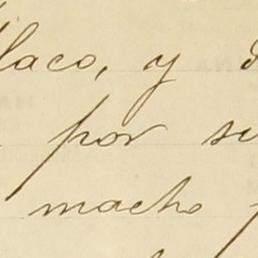 laco, y
por su
macho